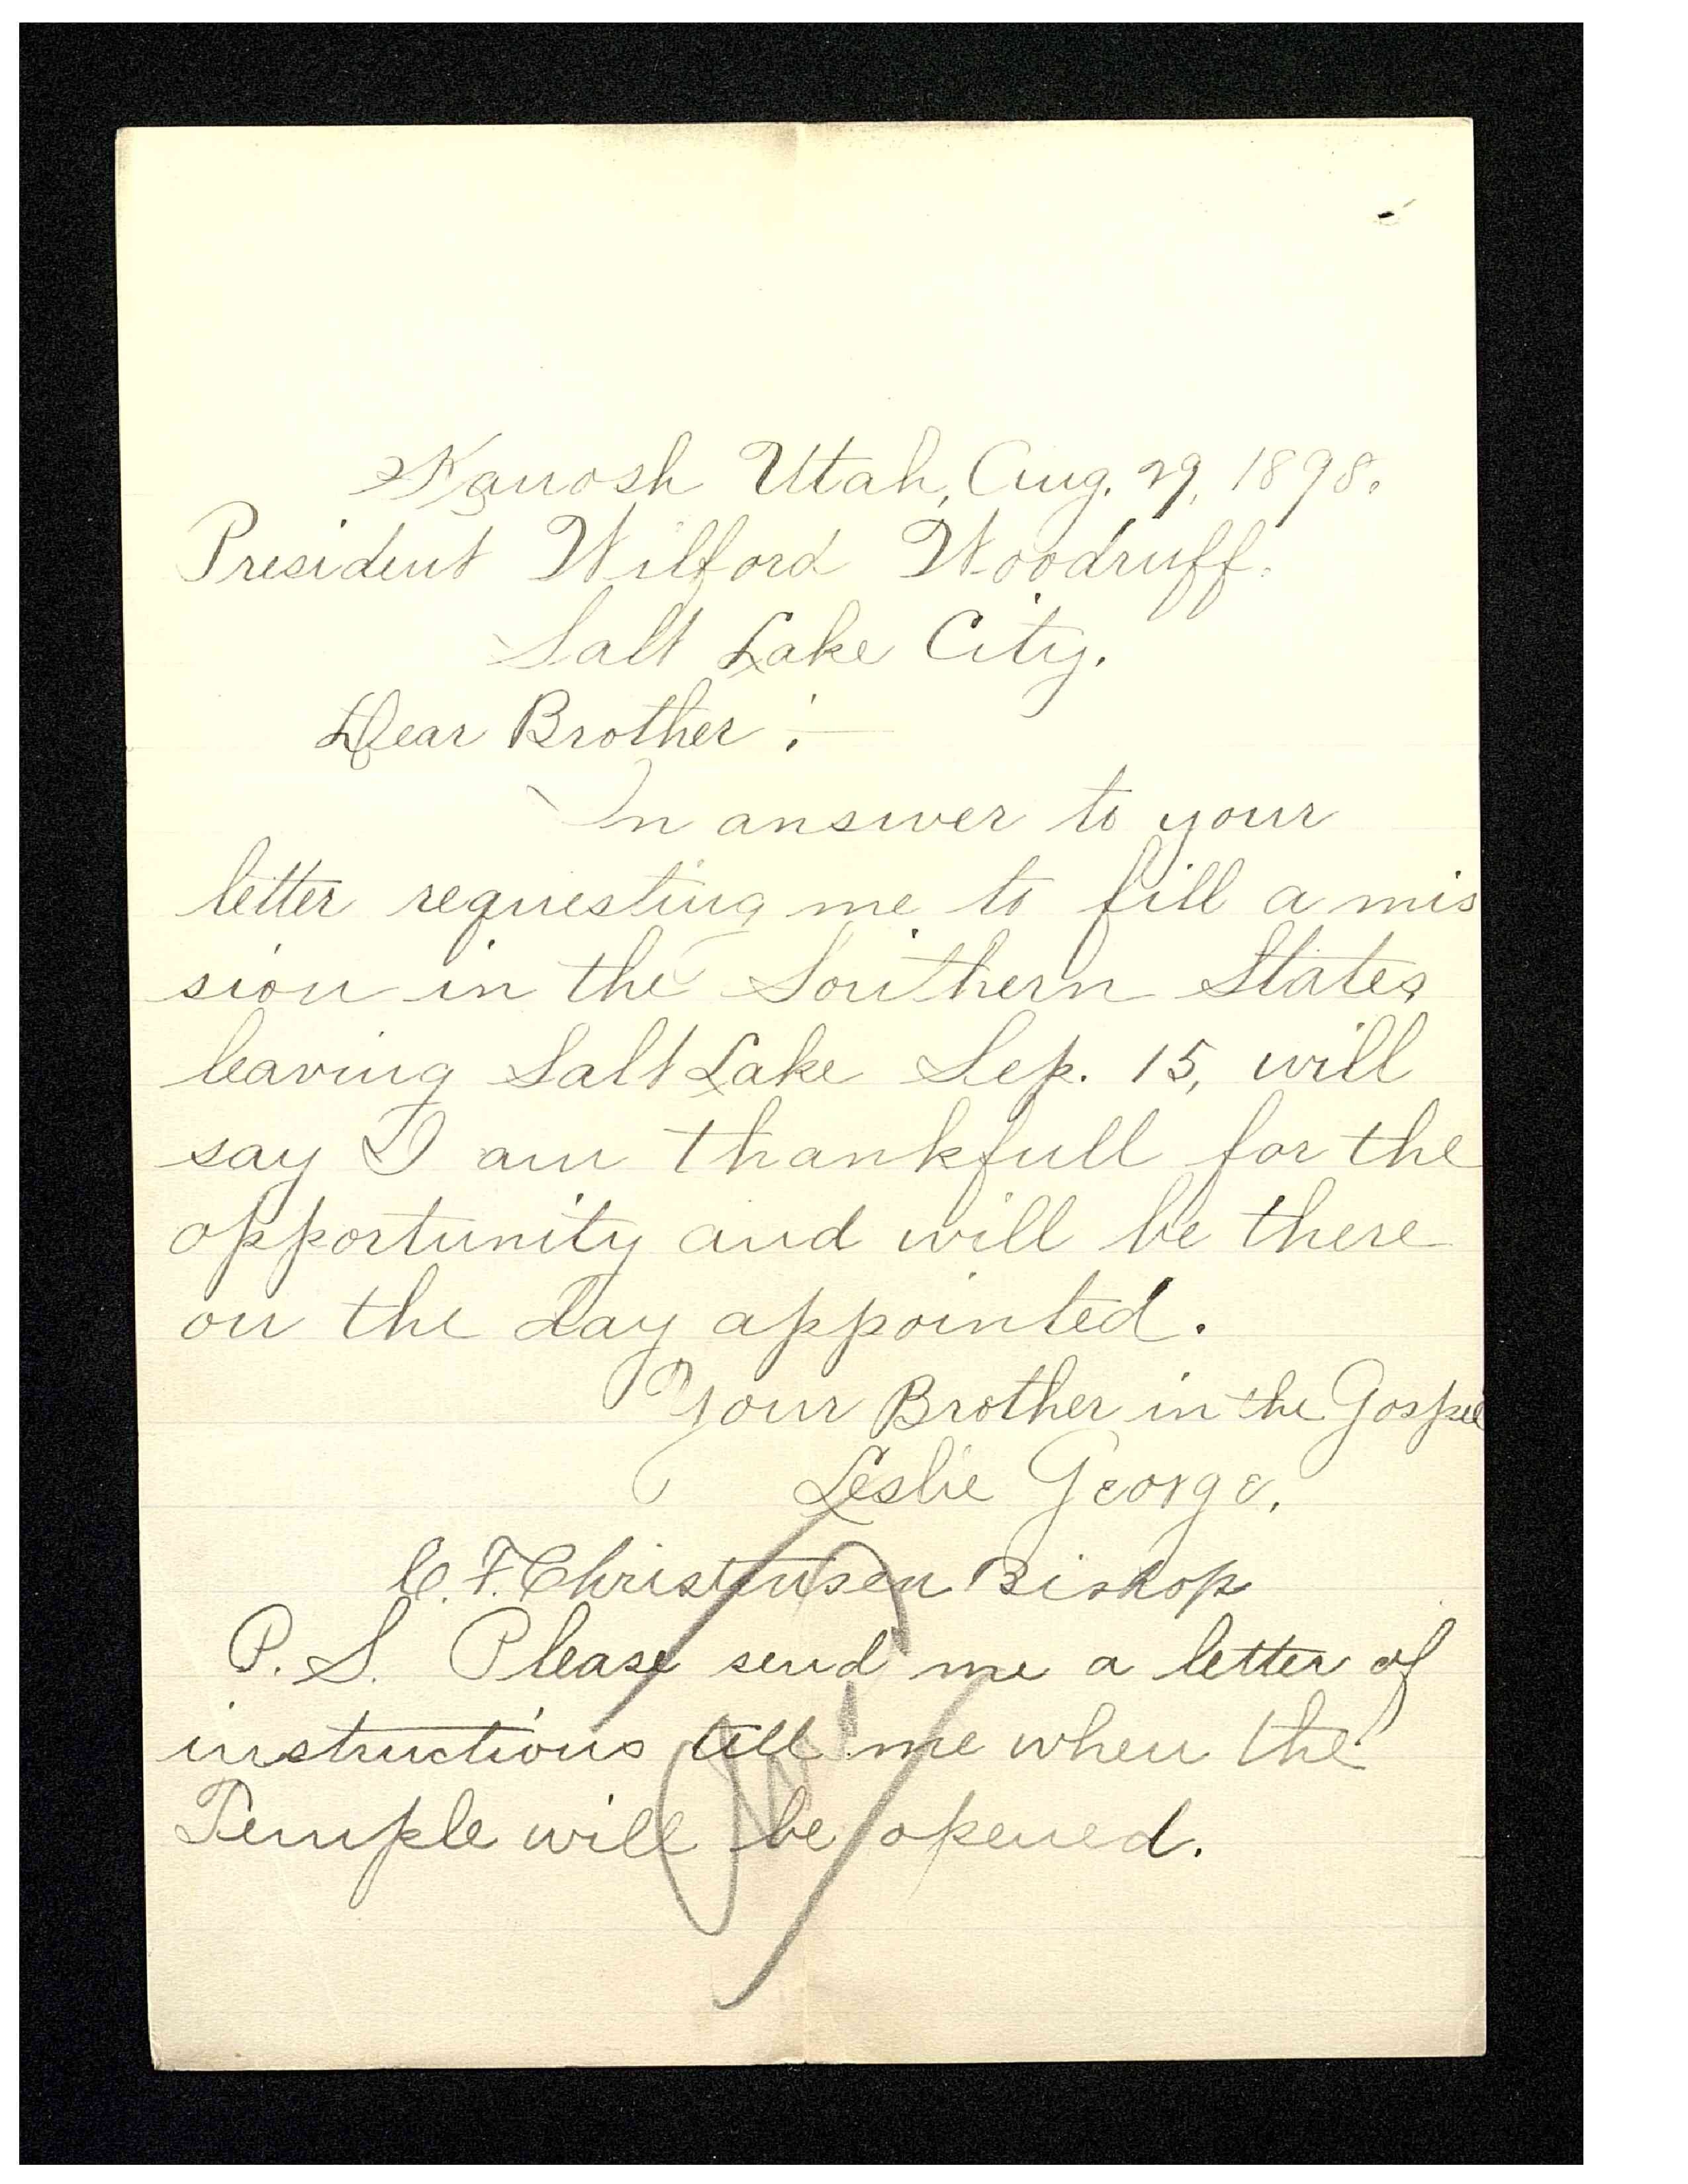 Kanosh Utah, Aug. 29, 1898.
President Wilford Woodruff.
Salt Lake City.
Dear Brother :—
In answer to your
letter requesting me to fill a mis
sion in the Southern States
leaving Salt Lake Sep. 15, will
say I am thankfull for the
opportunity and will be there
on the day appointed.
Your Brother in the Gospel
Leslie George.
C. F. Christensen Bishop
P. S. Please send me a letter of
instructions tell me when the
Temple will be opened.